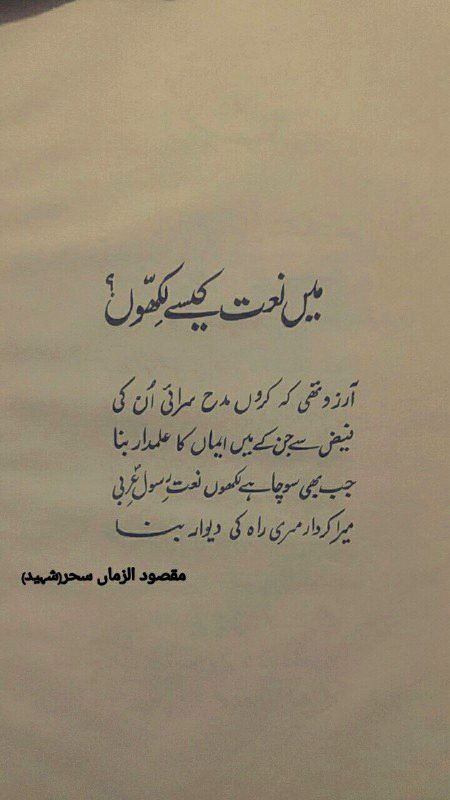 میں نعت کیسے لکھّوں؟
آرزو تھی کہ کروں مدح سرائی اُن کی
فیض سے جن کے میں ایماں کا علمدار بنا
جب بھی سوچا ہے لکھوں نعتِ رسولِ عربی
میرا کردار مری راہ کی دیوار بنا
مقصود الزماں سحر(شہید)